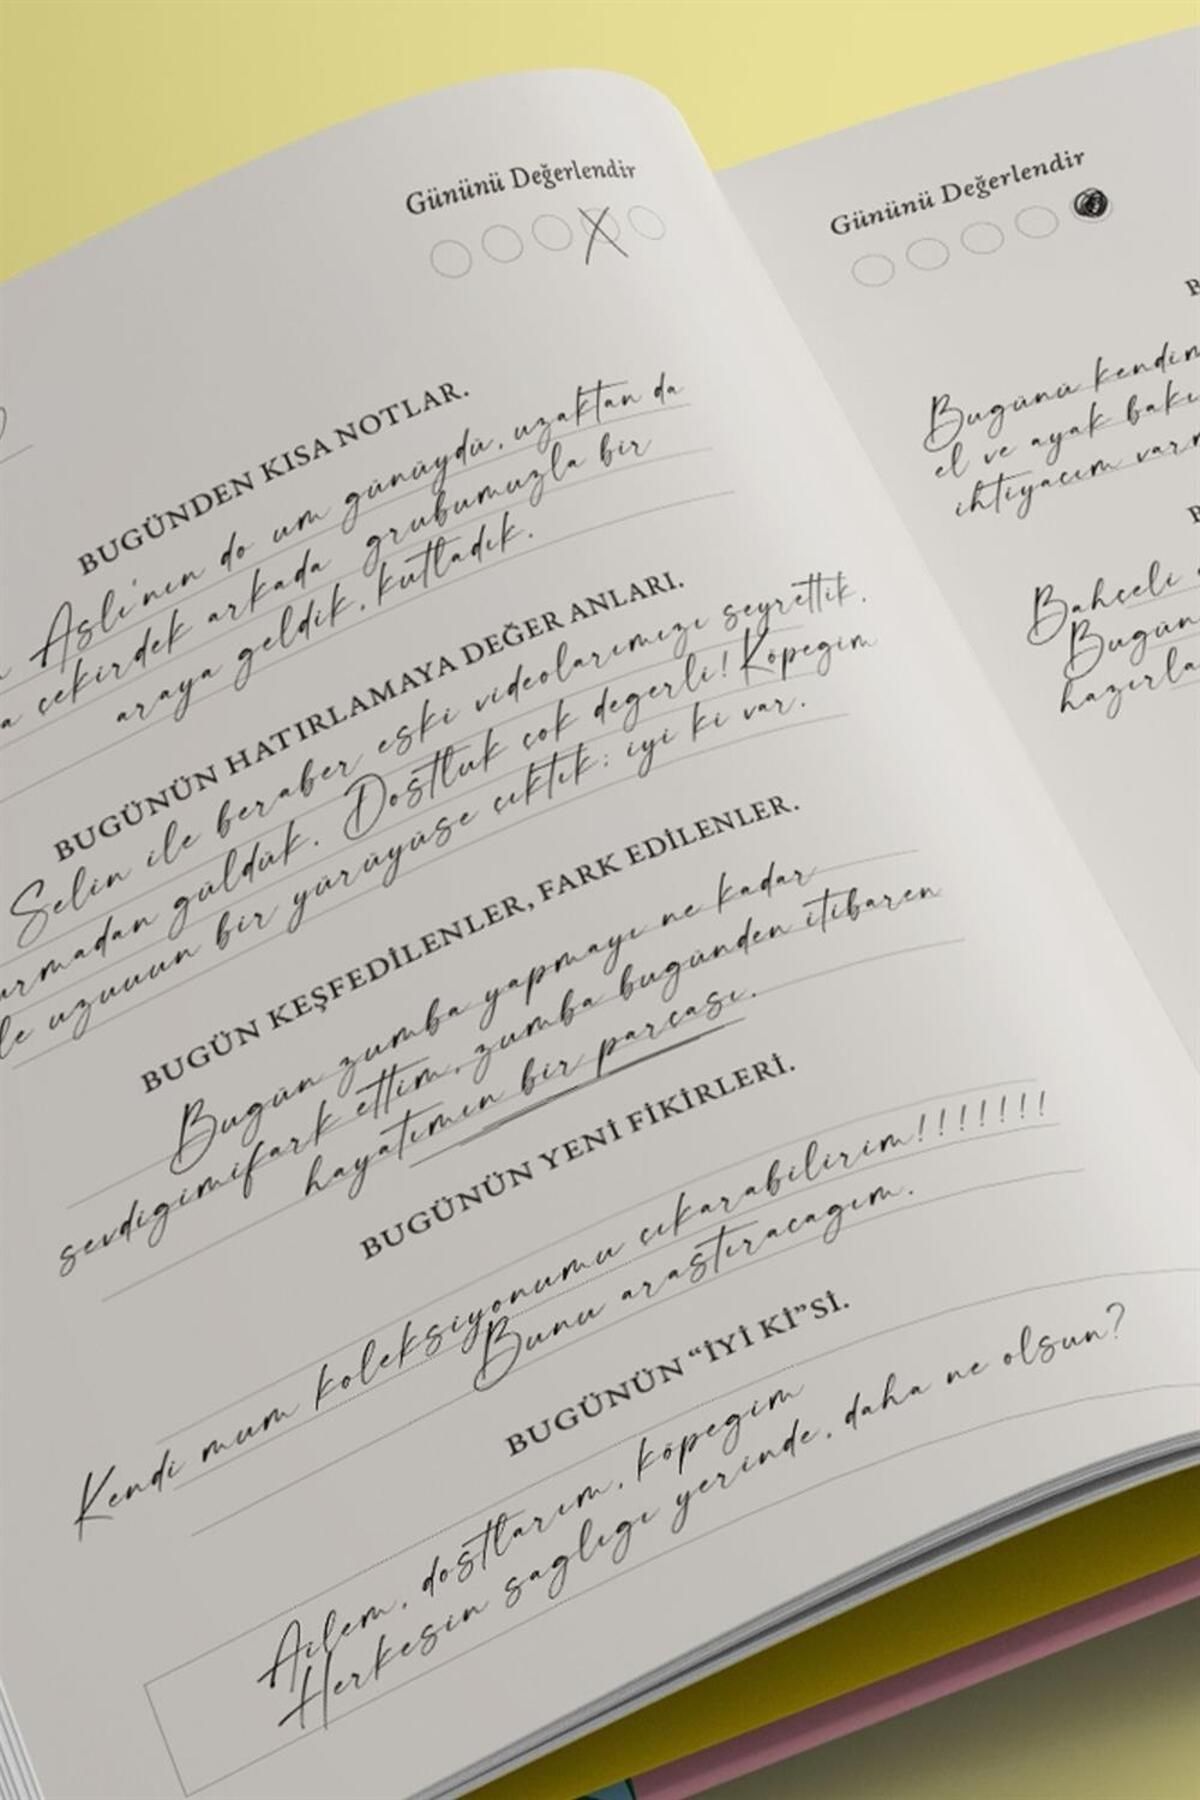 Gününü Değerlendir
BUGÜNDEN KISA NOTLAR.
Aslı'nın do um günüydü, uzaktan da
çekirdek arkada grubumuzla bir
araya geldik, kutladık.
BUGÜNÜN HATIRLAMAYA DEĞER ANLARI.
Selin ile beraber eski videolarımızı seyrettik,
güldük. Dostluk çok degerli! Köpegim
uzuuun bir yürüyüse çıktık; iyi ki var.
BUGÜN KEŞFEDİLENLER, FARK EDİLENLER.
Bugün zumba yapmayı ne kadar
sevdigimifark ettim, zumba bugünden itibaren
hayatımın bir parçası.
BUGÜNÜN YENİ FİKİRLERİ.
Kendi mum koleksiyonumu çıkarabilirim!!!!!!!
Bunu arastıracagım.
BUGÜNÜN “İYİ Kİ”Sİ.
Ailem, dostlarım, köpegim
Herkesin saglıgı yerinde, daha ne olsun?
Gününü Değerlendir
Bugünü kendim
el ve ayak bakı
ihtiyacım varm
Bahçeli
Bugün
hazırla